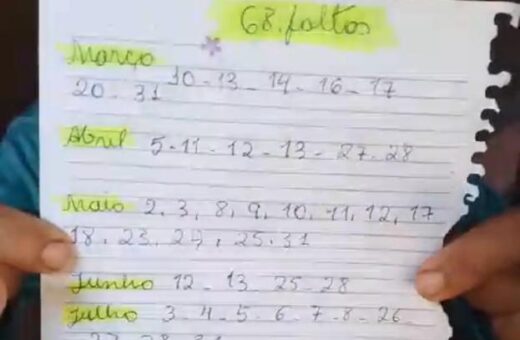 68. faltas
Março
10 - 13 - 14 - 16 - 17
20 - 31
Abril 5 - 11 - 12 - 13 - 27 - 28
Maio 2, 3, 8, 9, 10, 11, 12, 17
18, 23, 24, 25, 31
Junho 12 - 13 25 - 28
Julho 3 - 4 - 5 - 6 - 7 - 8 - 26